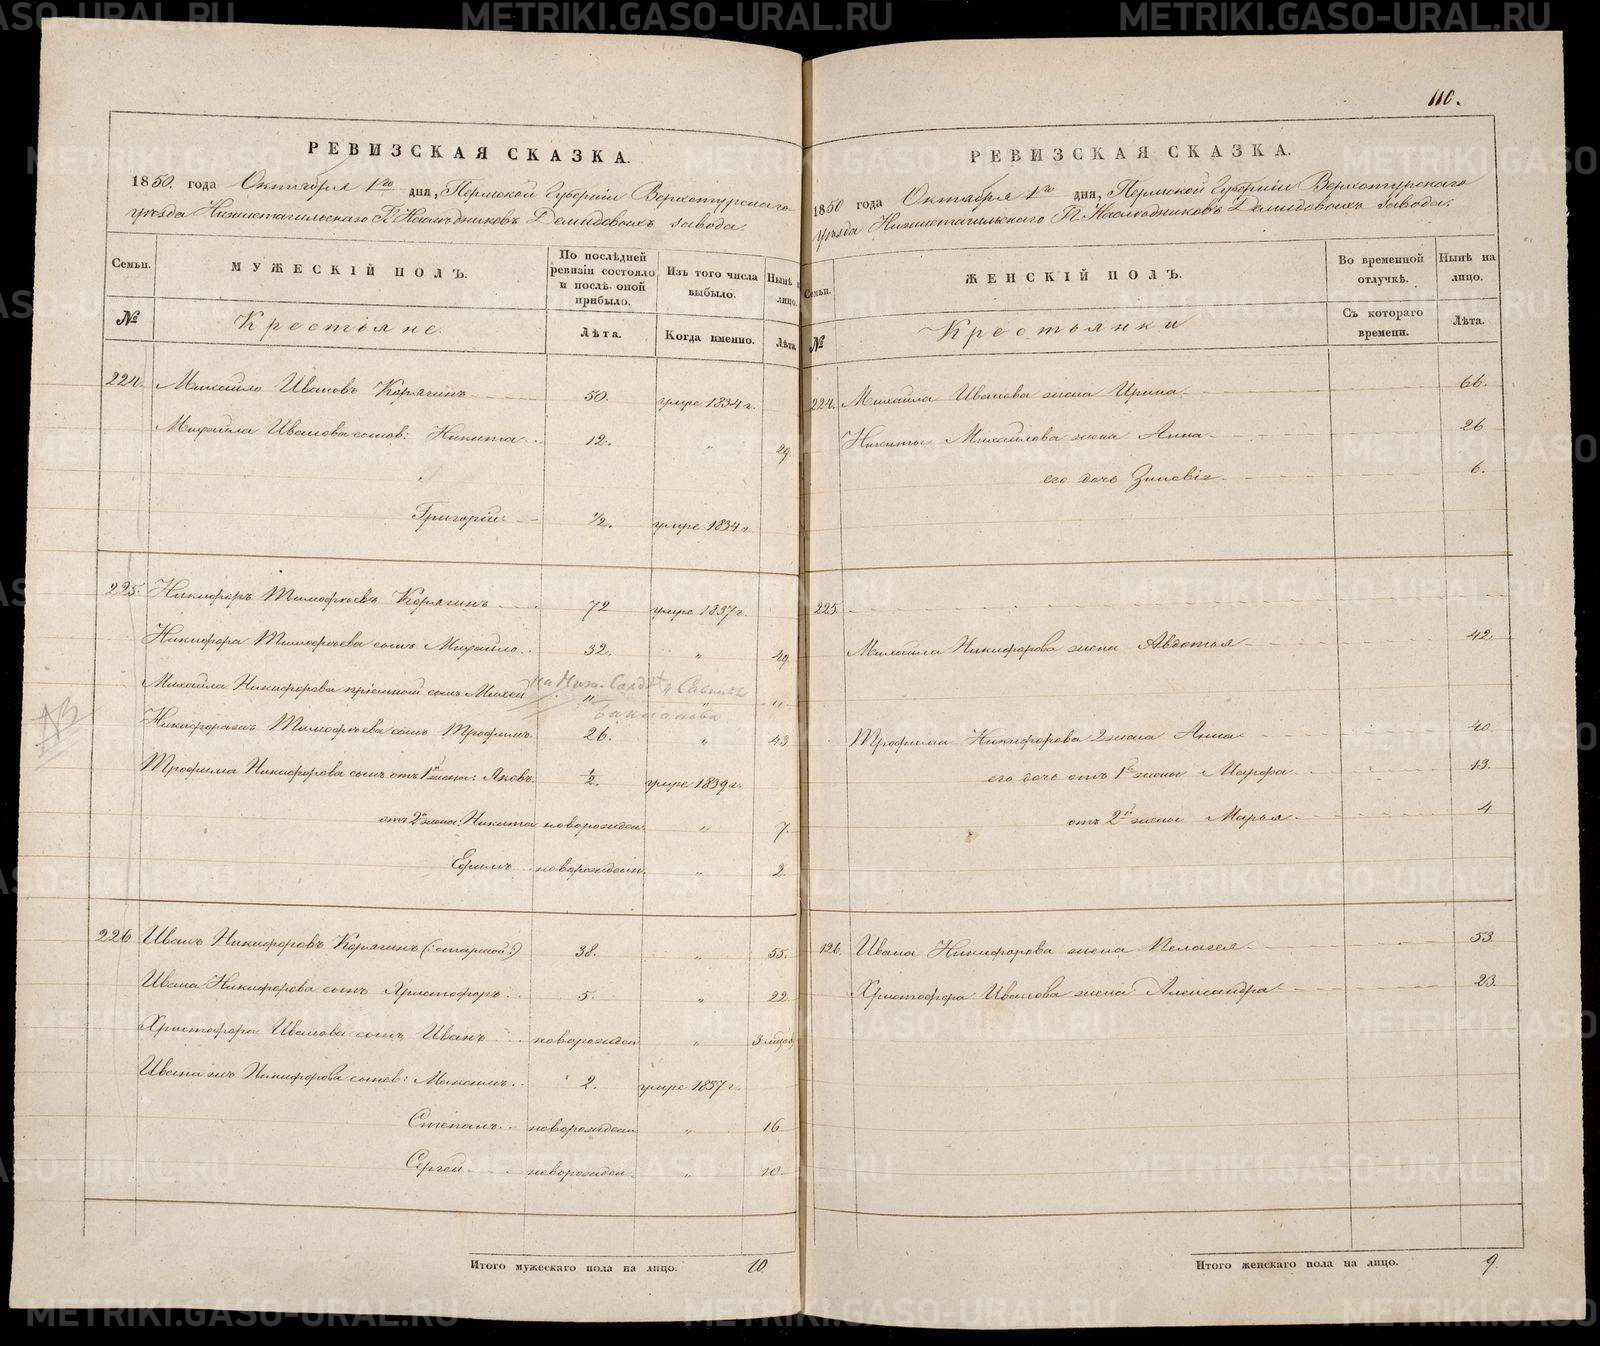 110.
РЕВИЗСКАЯ СКАЗКА.
1850. года Октября 1го дня, Пермской Губерніи Верхотурскаго
уѣзда Нижнетагильскаго Гг. Наслѣдниковъ Демидовыхъ завода.
Семьи.
МУЖЕСКІЙ ПОЛЪ.
По послѣдней ревизіи состояло и послѣ оной прибыло.
Изъ того числа выбыло.
Нынѣ на лицо.
№
Крестьяне.
Лѣта.
Когда именно.
Лѣта.
224. Михайло Ивановъ Корягинъ 50. умре 1834 г.
Михайла Иванова сынов: Никита 12. „ 29.
Григорій 1/2. умре 1834 г.
225. Никифоръ Тимофѣевъ Корягинъ 72 умре 1837 г.
Никифора Тимофѣева сынъ Михайло 32. „ 49.
Михайла Никифорова пріемный сынъ Михей „ „ „
на Ниж. Салдѣ у
Никифора жъ Тимофѣева сынъ Трофимъ 26. „ 43.
Трофима Никифорова сынъ отъ 1й жены: Яковъ. 1/2. умре 1839 г.
отъ 2й жены: Никита новорожден. „ 7.
Ефимъ новорожден. „ 2.
226 Иванъ Никифоровъ Корягинъ (: старшой :) 38. „ 55.
Ивана Никифорова сынъ Христофоръ. 5. „ 22
Христофора Иванова сынъ Иванъ новорожден „ 3 мѣсяц
Ивана жъ Никифорова сынов: Максимъ. 2. умре 1837 г.
Степанъ. новорожден „ 16
Сергей новорожден. „ 10.
Итого мужескаго пола на лицо. 10
РЕВИЗСКАЯ СКАЗКА.
1850 года Октября 1го дня, Пермской Губерніи Верхотурскаго
уѣзда Нижнетагильскаго Гг. Наслѣдниковъ Демидовыхъ завода.
Семьи.
ЖЕНСКІЙ ПОЛЪ.
Во временной отлучкѣ.
Нынѣ на лицо.
№
Крестьянки
Съ котораго времени.
Лѣта.
224. Михайла Иванова жена Ирина 66.
Никиты Михайлова жена Анна 26
его дочь Зиновія. 6.
225.
Михайла Никифорова жена Авдотья 42.
Трофима Никифорова 2 жена Анна 40
его дочь отъ 1й жены Марфа 13.
отъ 2й жены Марья. 4
126. Ивана Никифорова жена Пелагея 53
Христофора Иванова жена Александра 23.
Итого женскаго пола на лицо. 9.
METRIKI.GASO-URAL.RU